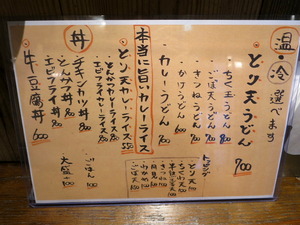 温・冷 選べます
とり天うどん 700
・ちく玉うどん 800
・ごぼ天うどん
・きつねうどん
・かけうどん
・カレーうどん
トッピング
とり天
ちくわ天
きつね
わかめ
ごぼ天
本当に旨いカレーライス
・とり天カレーライス
・とんかつカレーライス
・エビフライカレーライス
丼
・チキンカツ丼
・とんかつ丼
・エビフライ丼
・牛豆腐丼 600
・ごはん
大盛 +100